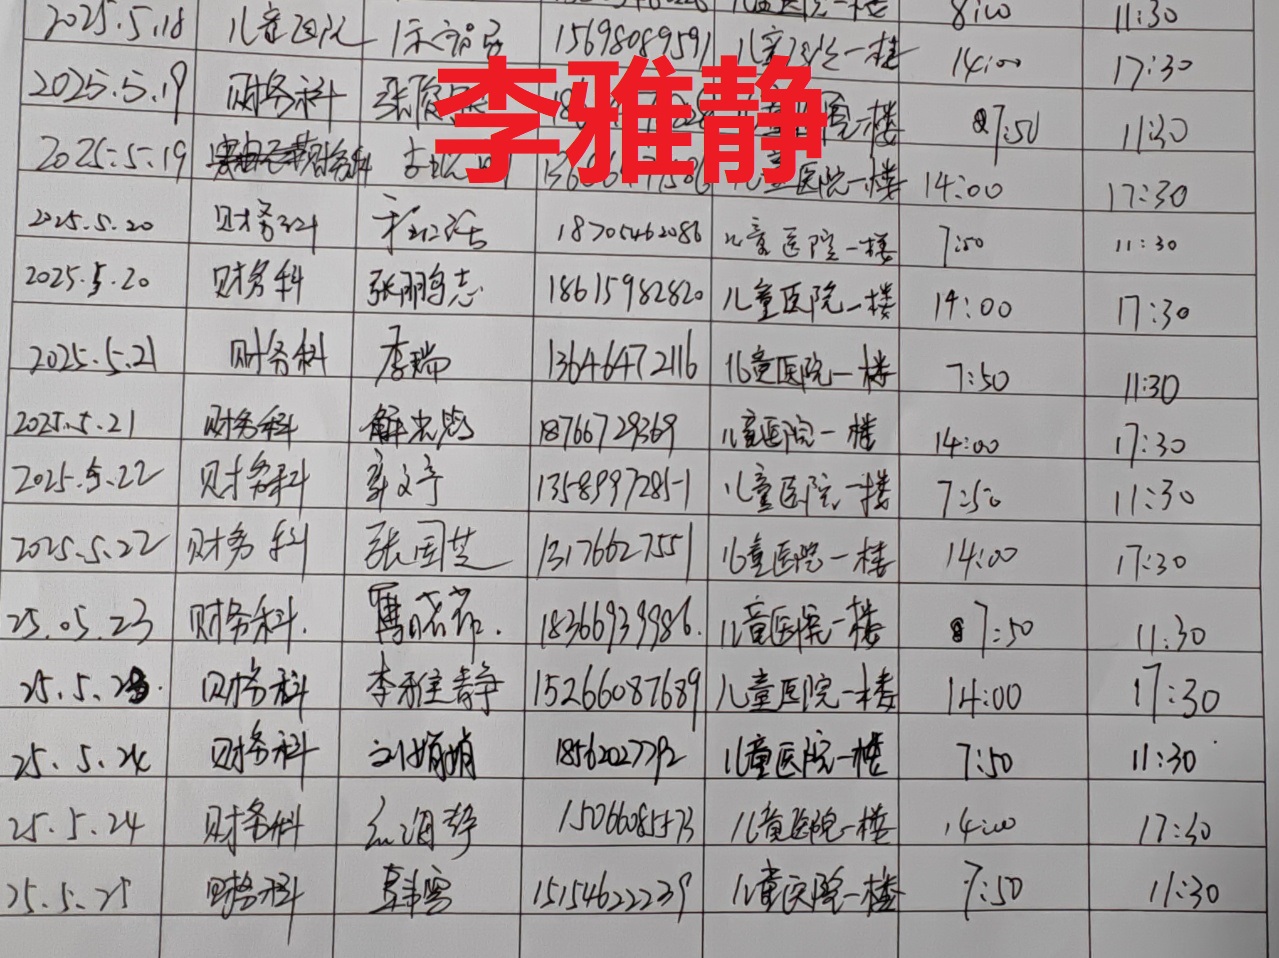 儿童医院一楼 8:00 11:30
2025.5.18 儿童医院 15698089591 儿童医院一楼 14:00 17:30
李雅静
2025.5.19 财务科 一楼 7:50 11:30
2025.5.19 财务科 儿童医院一楼 14:00 17:30
2025.5.20 财务科 18705462086 儿童医院一楼 7:50 11:30
2025.5.20 财务科 张鹏志 18615982820 儿童医院一楼 14:00 17:30
2025.5.21 财务科 李瑞 13646472116 儿童医院一楼 7:50 11:30
2025.5.21 财务科 18766729369 儿童医院一楼 14:00 17:30
2025.5.22 财务科 13589972851 儿童医院一楼 7:50 11:30
2025.5.22 财务科 张国芝 13176627551 儿童医院一楼 14:00 17:30
25.05.23 财务科. 18366939986. 儿童医院一楼 7:50 11:30
25.5.23. 财务科 李雅静 15266087689 儿童医院一楼 14:00 17:30
25.5.24 财务科 刘娟娟 18562027792 儿童医院一楼 7:50 11:30
25.5.24 财务科 15066085573 儿童医院一楼 14:00 17:30
25.5.25 财务科 15154622239 儿童医院一楼 7:50 11:30